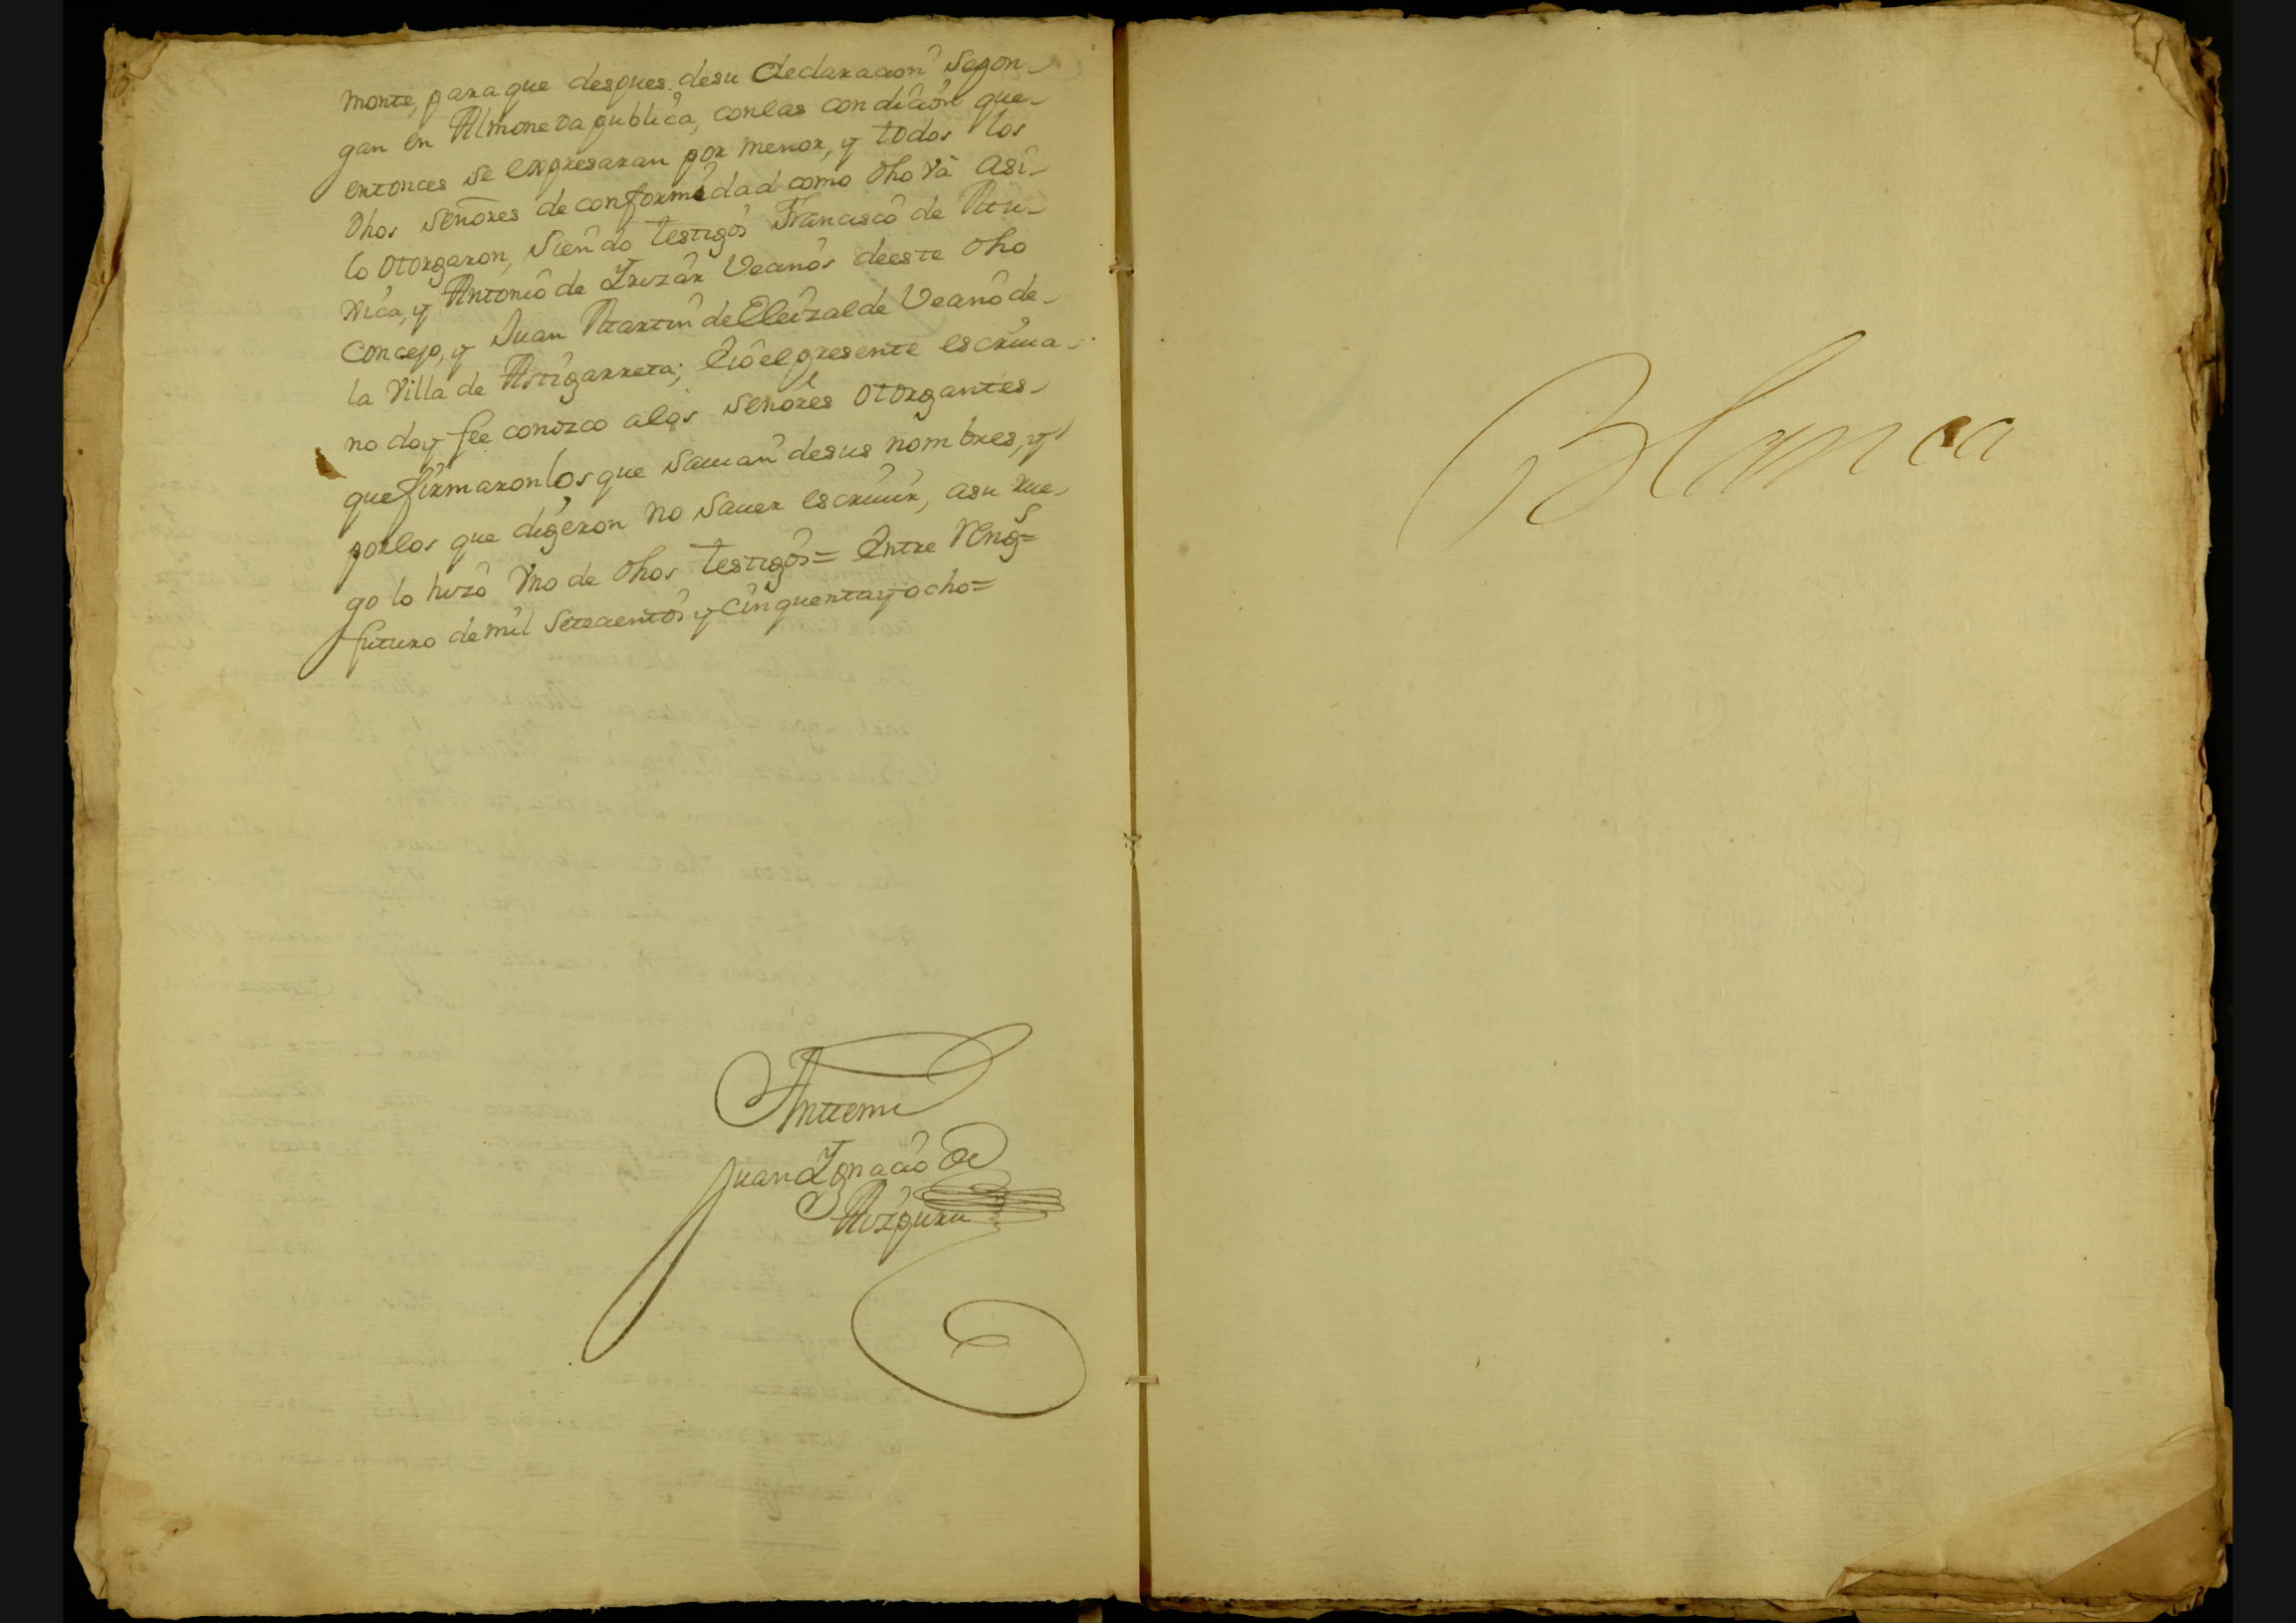 monte, para que despues desu declaracion se pon-
gan en Almoneda publica, conlas condicion que-
entonces se expresaran por menor, y todos los
dhos señores de conformidad como dho và asi-
lo otorgaron, siendo testigos Francisco de
rica, y Antonio de Yrizar Vecinos deeste dho
Concejo, y Juan Martin de Eleizalde Vecino de-
la Villa de Astigarreta; eio el presente escriua-
no doy fee conozco alos señores otorgantes-
que firmaron los que sauian desus nombres, y
porlos que digeron no sauer escriuir, asu rue-
go lo hizo Vno de dhos testigos= Entre Reng.s=
futuro de mil setecientos y cinquentayocho=
Antemi
Juan Ygnacio de
Aizpuru
Blanca